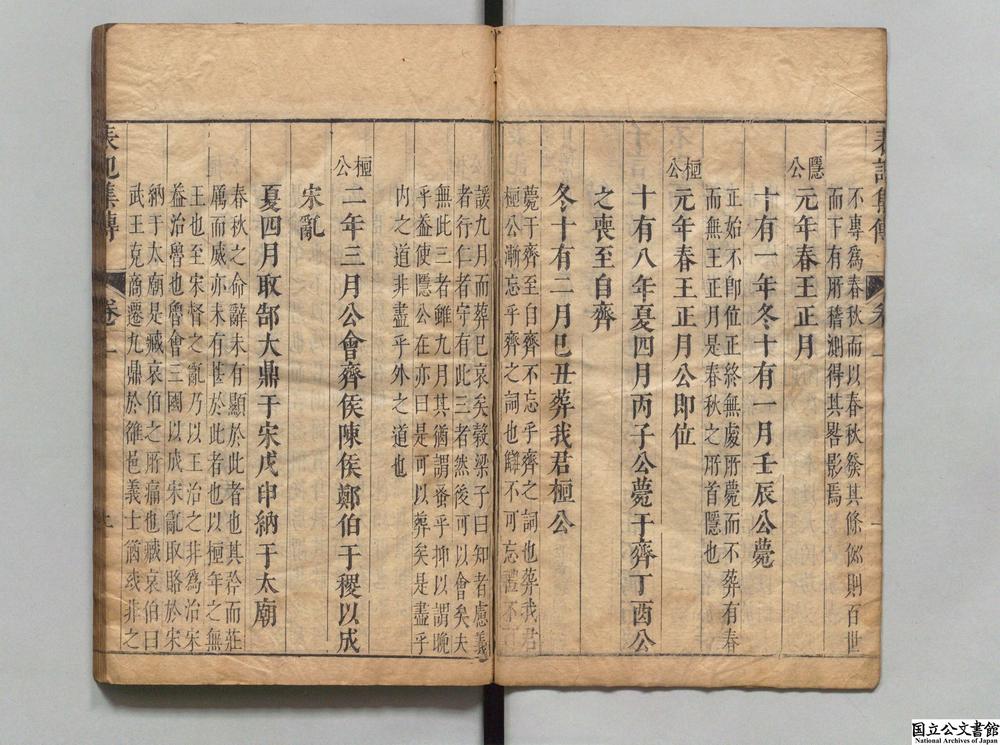 表記集傳
卷一
不專為春秋而以春秋發其條例則百世
而下有所稽測得其畧影焉
隱公
元年春王正月
十有一年冬十有一月壬辰公薨
正始不即位正終無處所薨而不葬有春
而無王正月是春秋之所首隱也
桓公
元年春王正月公即位
十有八年夏四月丙子公薨于齊丁酉公
之喪至自齊
冬十有二月己丑葬我君桓公
薨于齊至自齊不忘乎齊之詞也葬我君
桓公漸忘乎齊之詞也讎不可忘禮不可
諼九月而葬已哀矣穀梁子曰知者慮義
者行仁者守有此三者然後可以會矣夫
無此三者雖九月其猶謂蚤乎抑以謂晚
乎葢使隱公在亦曰是可以葬矣是盡乎
内之道非盡乎外之道也
桓公
二年三月公會齊侯陳侯鄭伯于稷以成
宋亂
夏四月取郜大鼎于宋戊申納于太廟
春秋之命辭未有顯於此者也其矜而莊
厲而威亦未有甚於此者也以桓年之無
王也至宋督之亂乃以王治之非為治宋
葢治魯也魯會三國以成宋亂取賂於宋
納于太廟是臧哀伯之所痛也臧哀伯曰
武王克商遷九鼎於雒邑義士猶或非之
表記集傳
卷一
国立公文書館
National Archives of Japan